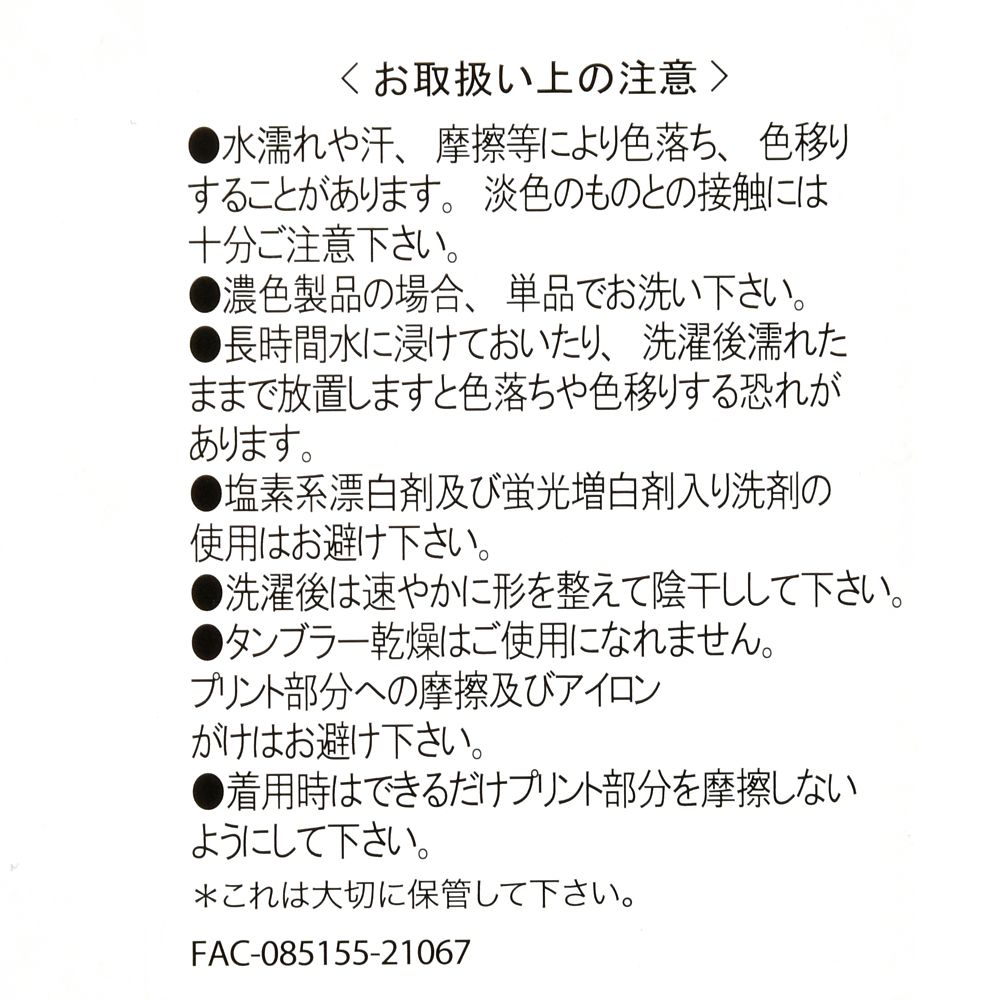 〈 お取扱い上の注意 〉
●水濡れや汗、 摩擦等により色落ち、 色移り
することがあります。 淡色のものとの接触には
十分ご注意下さい。
●濃色製品の場合、 単品でお洗い下さい。
●長時間水に浸けておいたり、 洗濯後濡れた
ままで放置しますと色落ちや色移りする恐れが
あります。
●塩素系漂白剤及び蛍光増白剤入り洗剤の
使用はお避け下さい。
●洗濯後は速やかに形を整えて陰干しして下さい。
●タンブラー乾燥はご使用になれません。
プリント部分への摩擦及びアイロン
がけはお避け下さい。
●着用時はできるだけプリント部分を摩擦しない
ようにして下さい。
＊これは大切に保管して下さい。
FAC-085155-21067